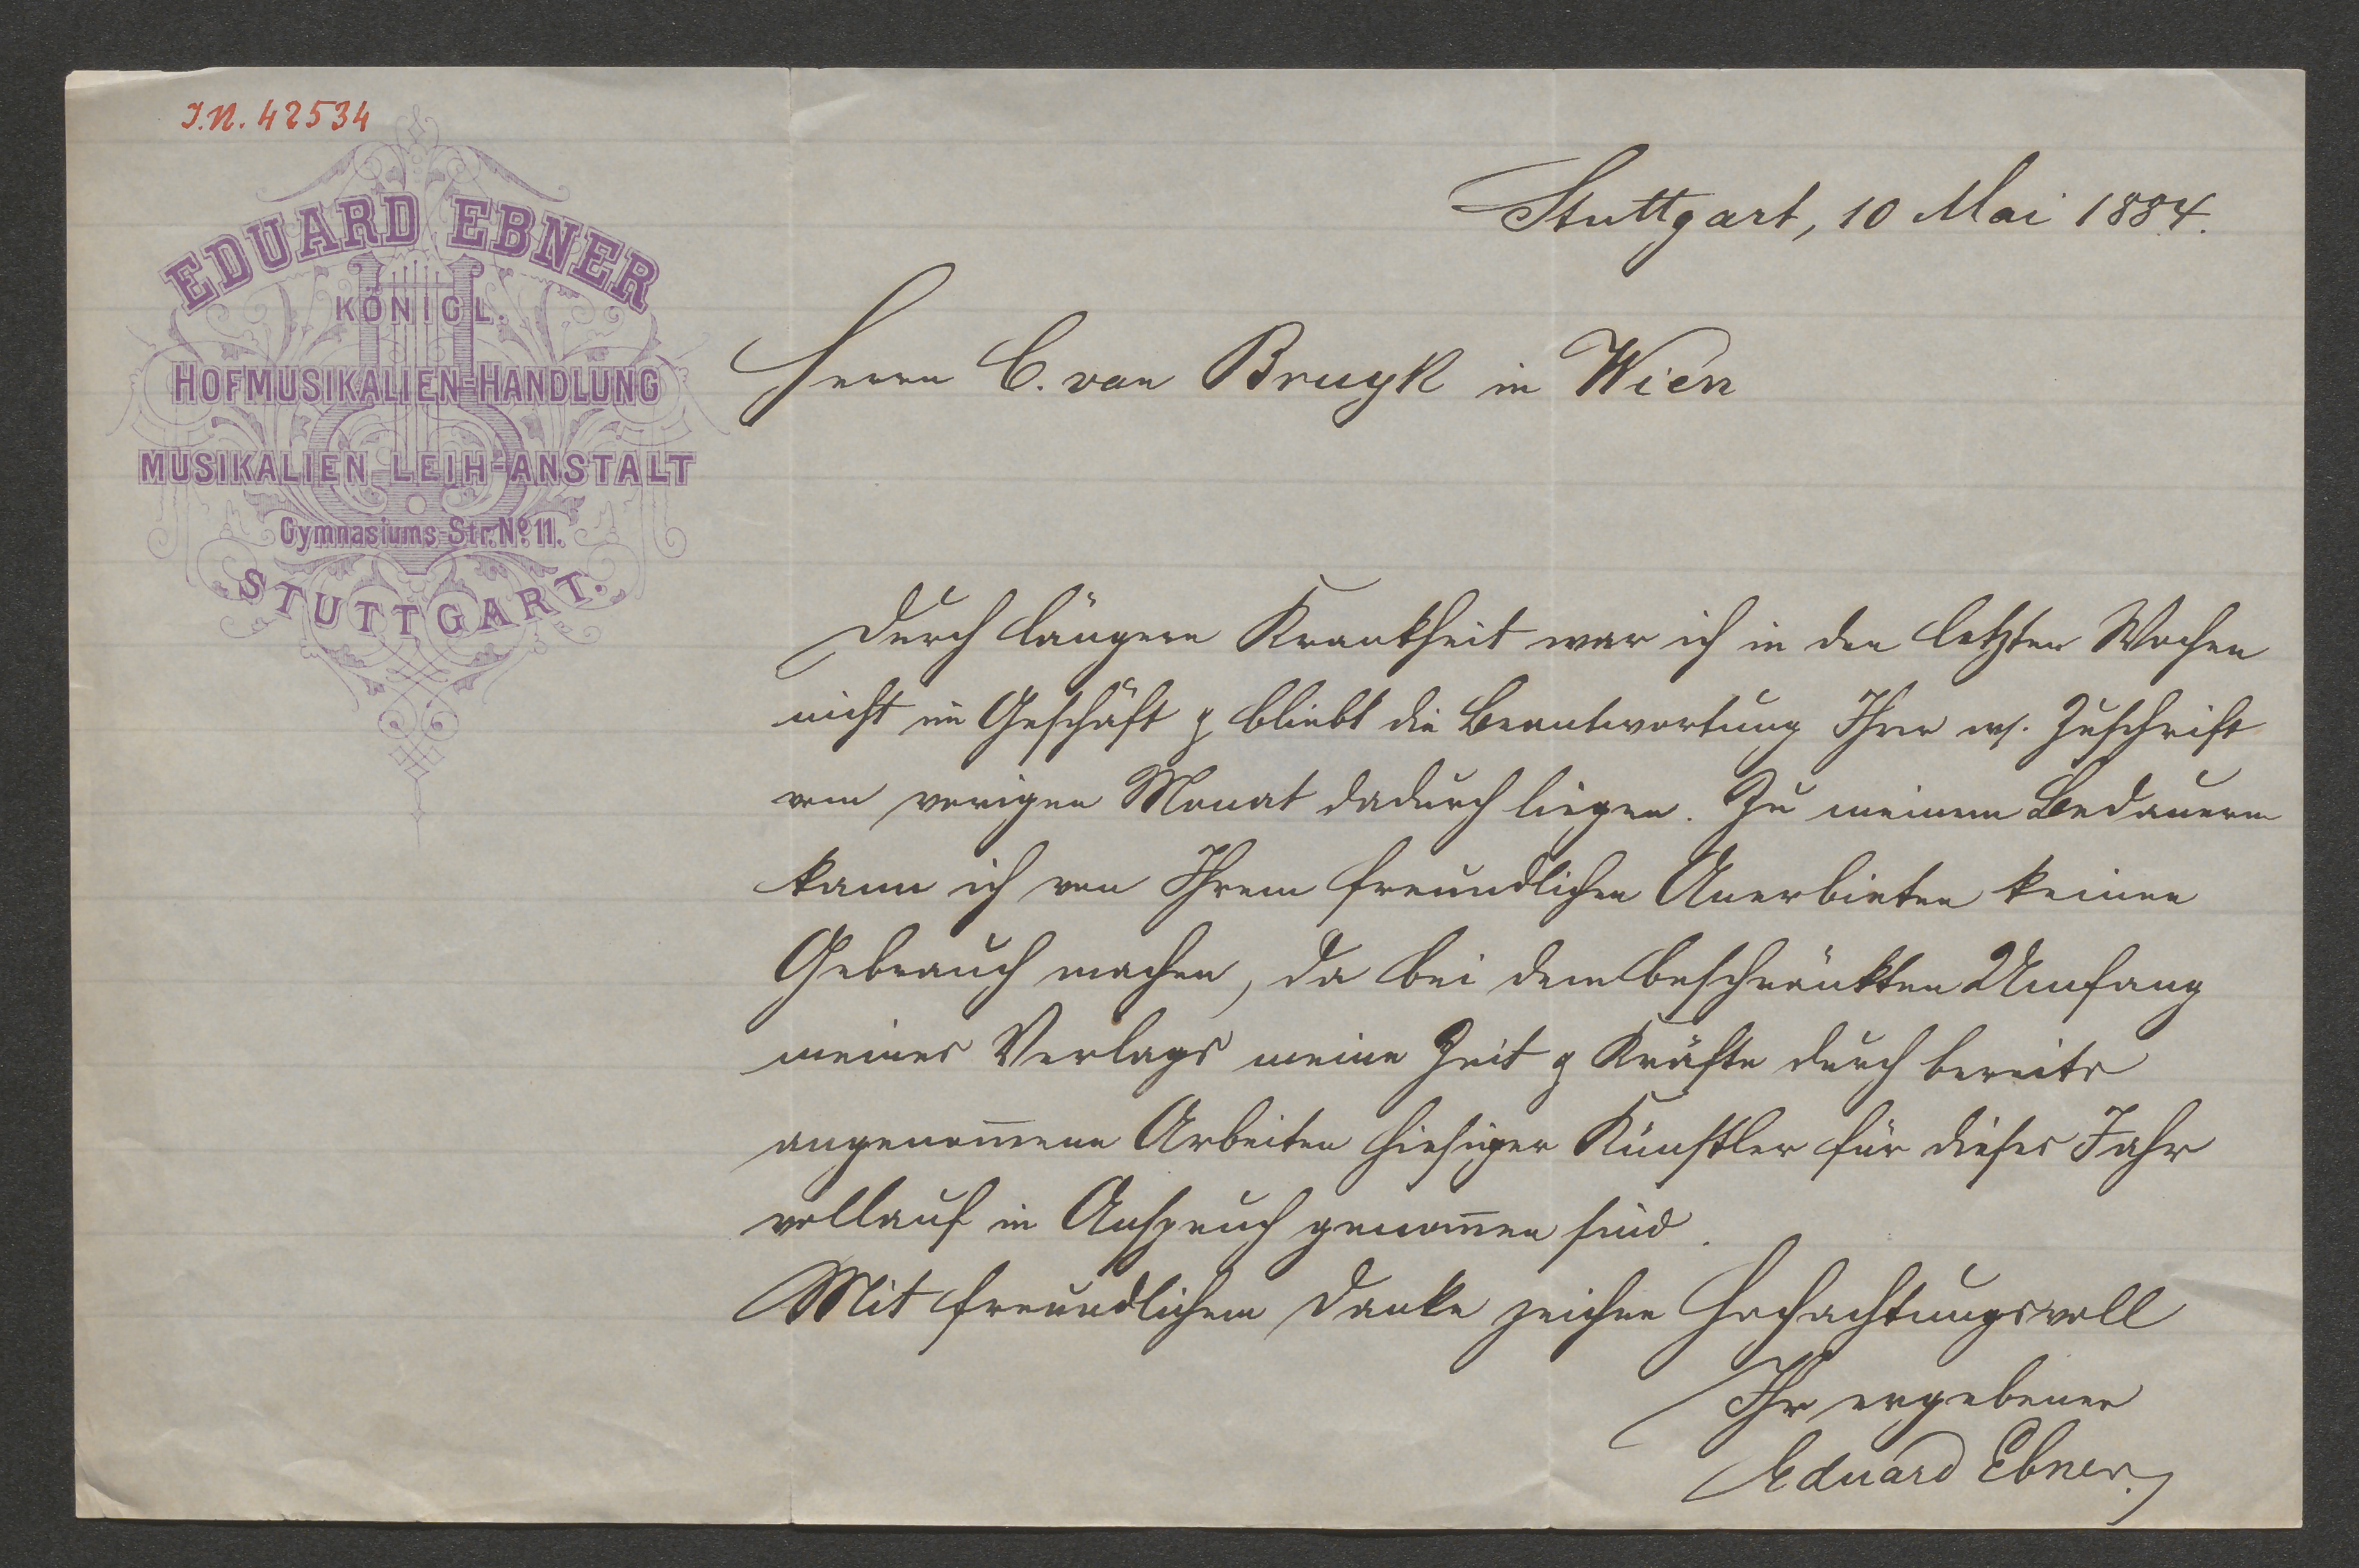 J.N. 42534
EDUARD EBNER
KÖNIGL.
HOFMUSIKALIEN-HANDLUNG
MUSIKALIEN-LEIH-ANSTALT
Gymnasiums-Str. No. 11.
STUTTGART.
Stuttgart, 10 Mai 1884.
Herrn C. van Bruyk in Wien
Durch längere Krankheit war ich in den letzten Wochen
nicht im Geschäft & bliebt die Beantwortung Ihrer w. Zuschrift
vom vorigen Monat dadurch liegen. Zu meinem Bedauern
kann ich von Ihrem freundlichen Anerbieten keinen
Gebrauch machen, da bei dem beschränkten Umfang
meines Verlags meine Zeit & Kräfte durch bereits
angenom̄ene Arbeiten hiesiger Künstler für dieses Jahr
vollauf in Anspruch genom̄en sind.
Mit freundlichem Danke zeichne hochachtungsvoll
Ihr ergebener
Eduard Ebner.